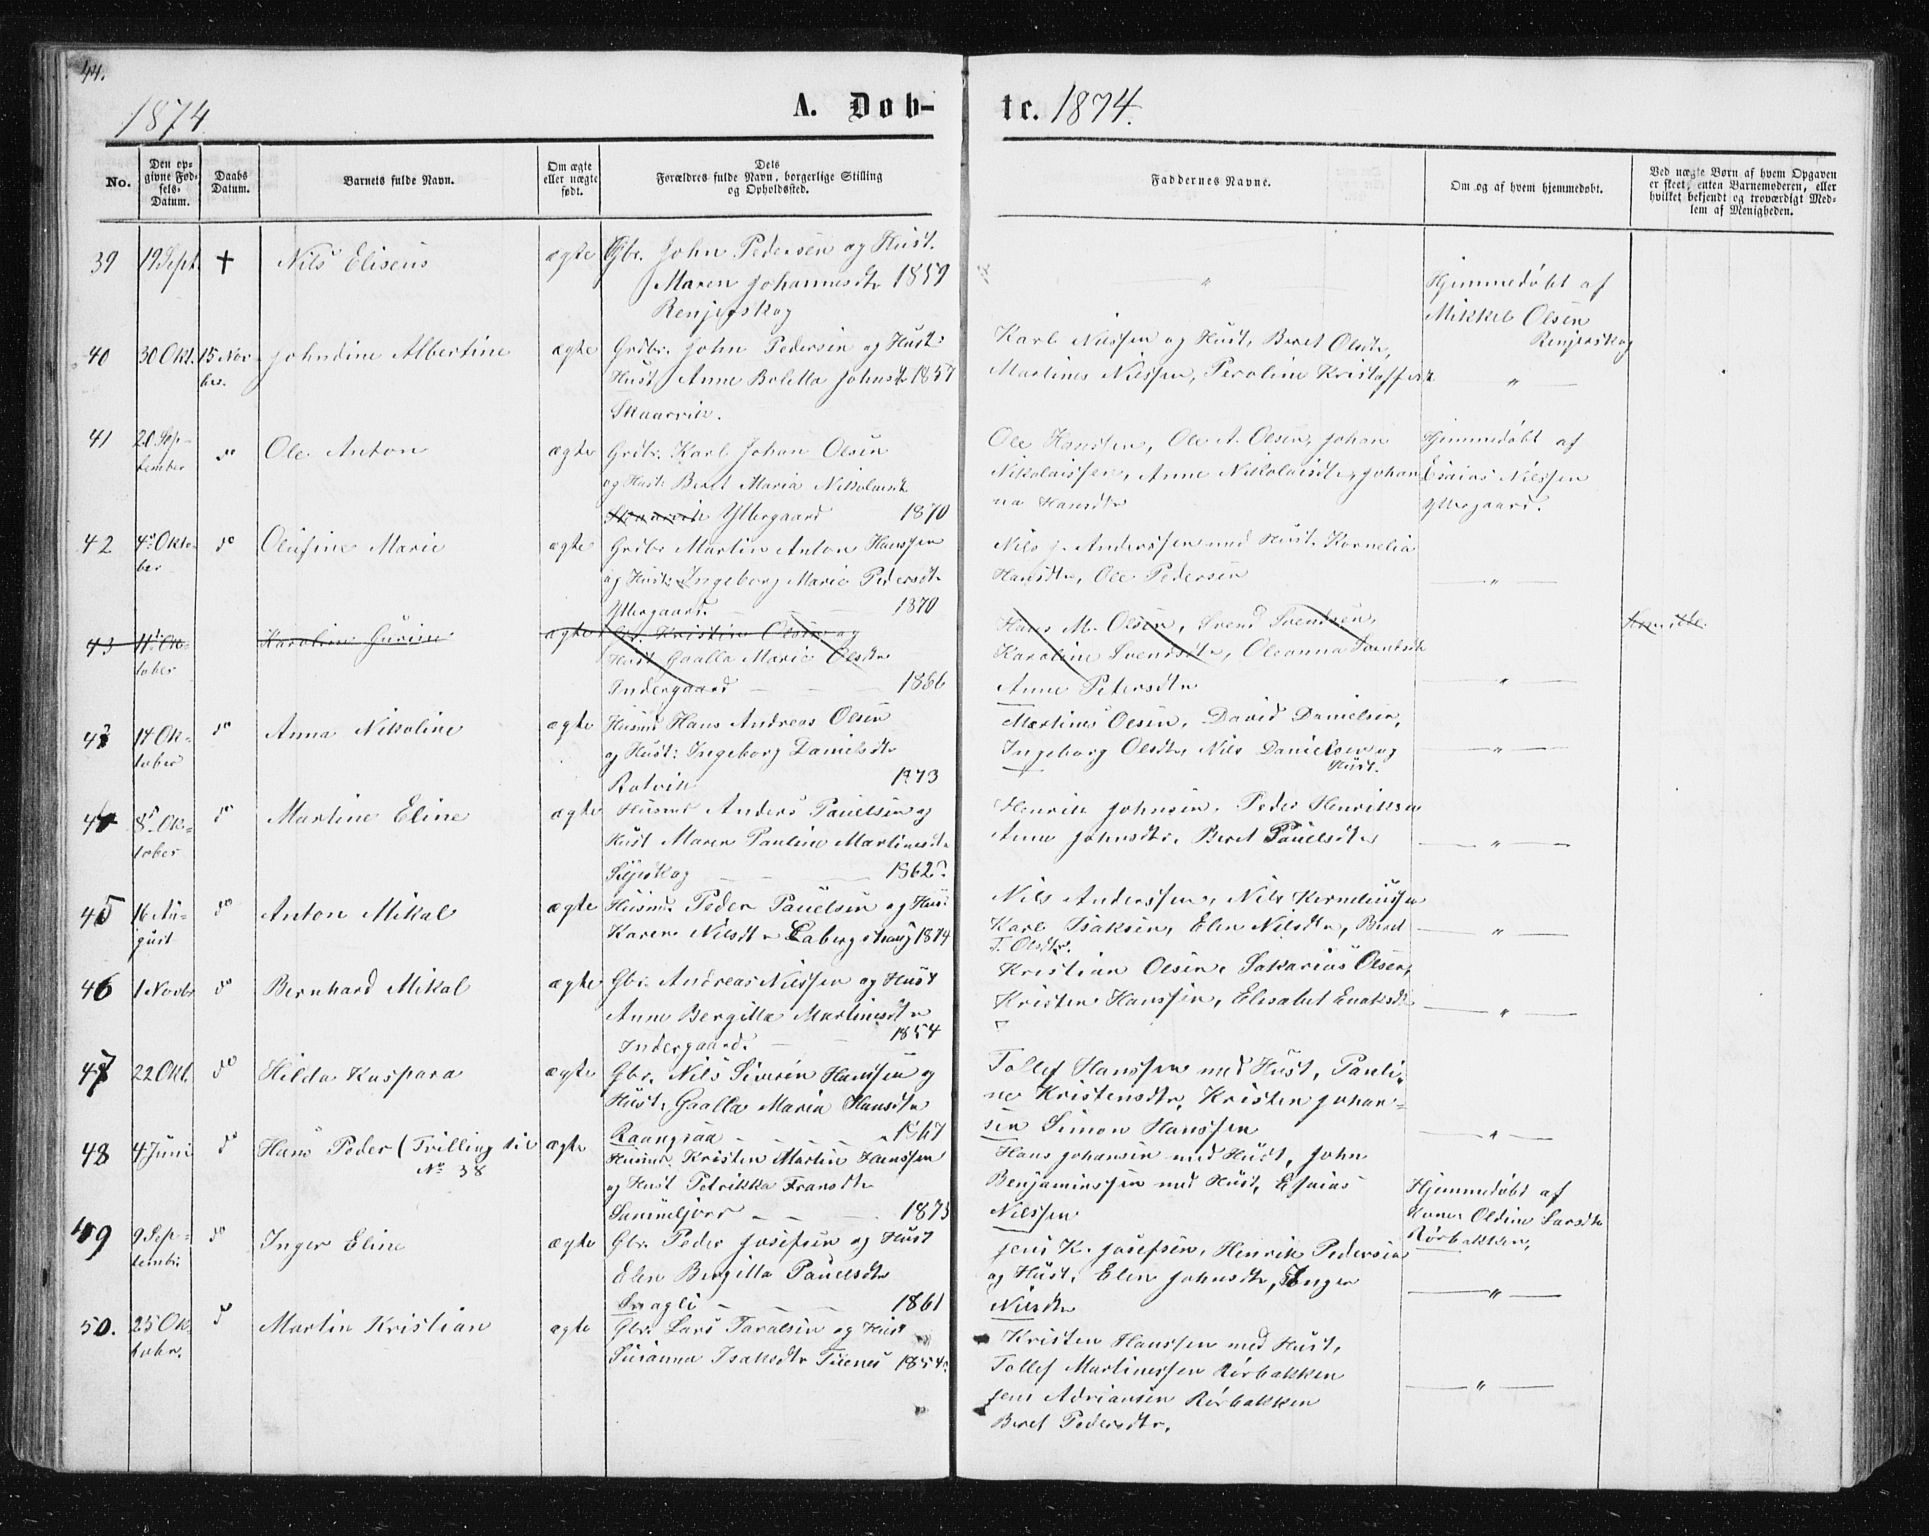 44.
1874
A. Døb-
te. 1874.
No.
Den op-
givne Fød-
sels-
Datum.
Daabs
Datum.
Barnets fulde Navn.
Om ægte
eller uægte
født.
Dets
Forældres fulde Navn, borgerlige Stilling
og Opholdssted.
Faddernes Navne.
Om og af hvem hjemmedøbt.
Ved uægte Børn af hvem Opgaven
er skeet, enten Barnemoderen, eller
hvilket bekjendt og troværdigt Med-
lem af Menigheden.
39 19 Sept. + Nils Eliseus ægte Gbr. John Pedersen og Hust.
Maren Johannesdtr 1859
Renjerskog
"
Hjemmedøbt af
Mikkel Olsen
Renjerskog
40 30 Okt. 15 Nov- Johndine Albertine ægte Grdbr. John Pedersen og Hust:
ber.
Hust Anne Boletta Johnsdtr 1857
Skaarvik.
Karl Nilssen og Hust, Beret Olsdtr,
Martines Nilssen, Peroline Kristoffersdtr "
41 20 Sep-
tember do Ole Anton ægte Grdbr. Karl Johan Olsen
og Hust: Beret Maria Nikolaisdtr
Yttergaard 1870
Ole Hansen, Ole A. Olsen, Johan
Nikolaissen, Anne Nikolaisdtr, Johan-
na Hansdtr
Hjemmedøbt af
Esaias Nilssen
Yttergaard.
42 4de Okto-
ber do Olufine Marie ægte Grdbr Martin Anton Hanssen
og Hust: Ingeborg Marie Pedersdtr
Yttergaard. 1870
Nils J. Anderssen med Hust. Kornelia
Hansdtr, Ole Pedersen
"
43 11te Ok-
tober Karoline Gurine ægte Gbr. Kristen Olsen og
Hust Gaalla Marie Olsdtr
Indergaard 1866
Hans M. Olsen, Svend Svendsen,
Karoline Svendsdtr, Oleanna Svendsdtr
Anne Petersdtr
"
43 14 Ok-
tober do Anna Nikoline ægte Husmd Hans Andreas Olsen
og Hust: Ingeborg Danielsdtr
Rotvik 1873
Martines Olsen, David Danielsen,
Ingeborg Olsdtr, Nils Danielsen og
Hust.
"
44 8de Ok-
tober do Martine Eline ægte Husmd Anders Pauelsen og
Hust Maren Pauline Martinusdtr
1862
Henrik Johnsen, Peder Henriksen
Anne Johnsdtr, Beret Pauelsdtr
"
45 16 Au-
gust do Anton Mikal ægte Husmd. Peder Pauelsen og Hus:
Karen Nilsdtr Labergshaug 1874
Nils Anderssen, Nils Korneliussen
Karl Isaksen, Elen Nilsdtr, Beret
T. Olsdtr.
"
46 1 Novbr do Bernhard Mikal ægte Gbr. Andreas Nilssen og Hust
Anne Bergitta Martinusdtr
Indergaard. 1854
Kristian Olsen, Sakarias Olsen,
Kristen Hanssen, Elisabet Enoksdtr
"
47 22 Okt. do Hilda Kaspara ægte Gbr. Nils Siverin Hanssen og
Hust. Gaalla Maria Hansdtr
Raangsaa 1867
Tollef Hanssen med Hust, Pauli-
ne Kristensdtr, Kristen Johan-
sen Simon Hanssen
"
48 4 Juni do Hans Peder (Trilling til ægte
No 38
Husmd. Kristen Martin Hanssen
og Hust Petrikka Fransdtr
1873
Hans Johansen med Hust, John
Benjaminssen med Hust, Esaias
Nilssen
Hjemmedøbt af
Oldine Larsdtr
Rørbakken.
49 9 Sep-
tembr do Inger Eline ægte Gbr. Peder Josefsen og Hust
Elen Bergitta Pauelsdtr
1861
Jens K. Josefsen, Henrik Pedersen
og Hust, Elen Johnsdtr, Inger
Nilsdtr
"
50. 25 Ok-
tobr. do Martin Kristian ægte Gbr. Lars Taralsen og Hust
Susanna Isaksdtr 1854
Kristen Hanssen med Hust,
Tollef Martinussen Rørbakken
Jens Adriansen Rørbakken
Beret Pedersdtr.
"